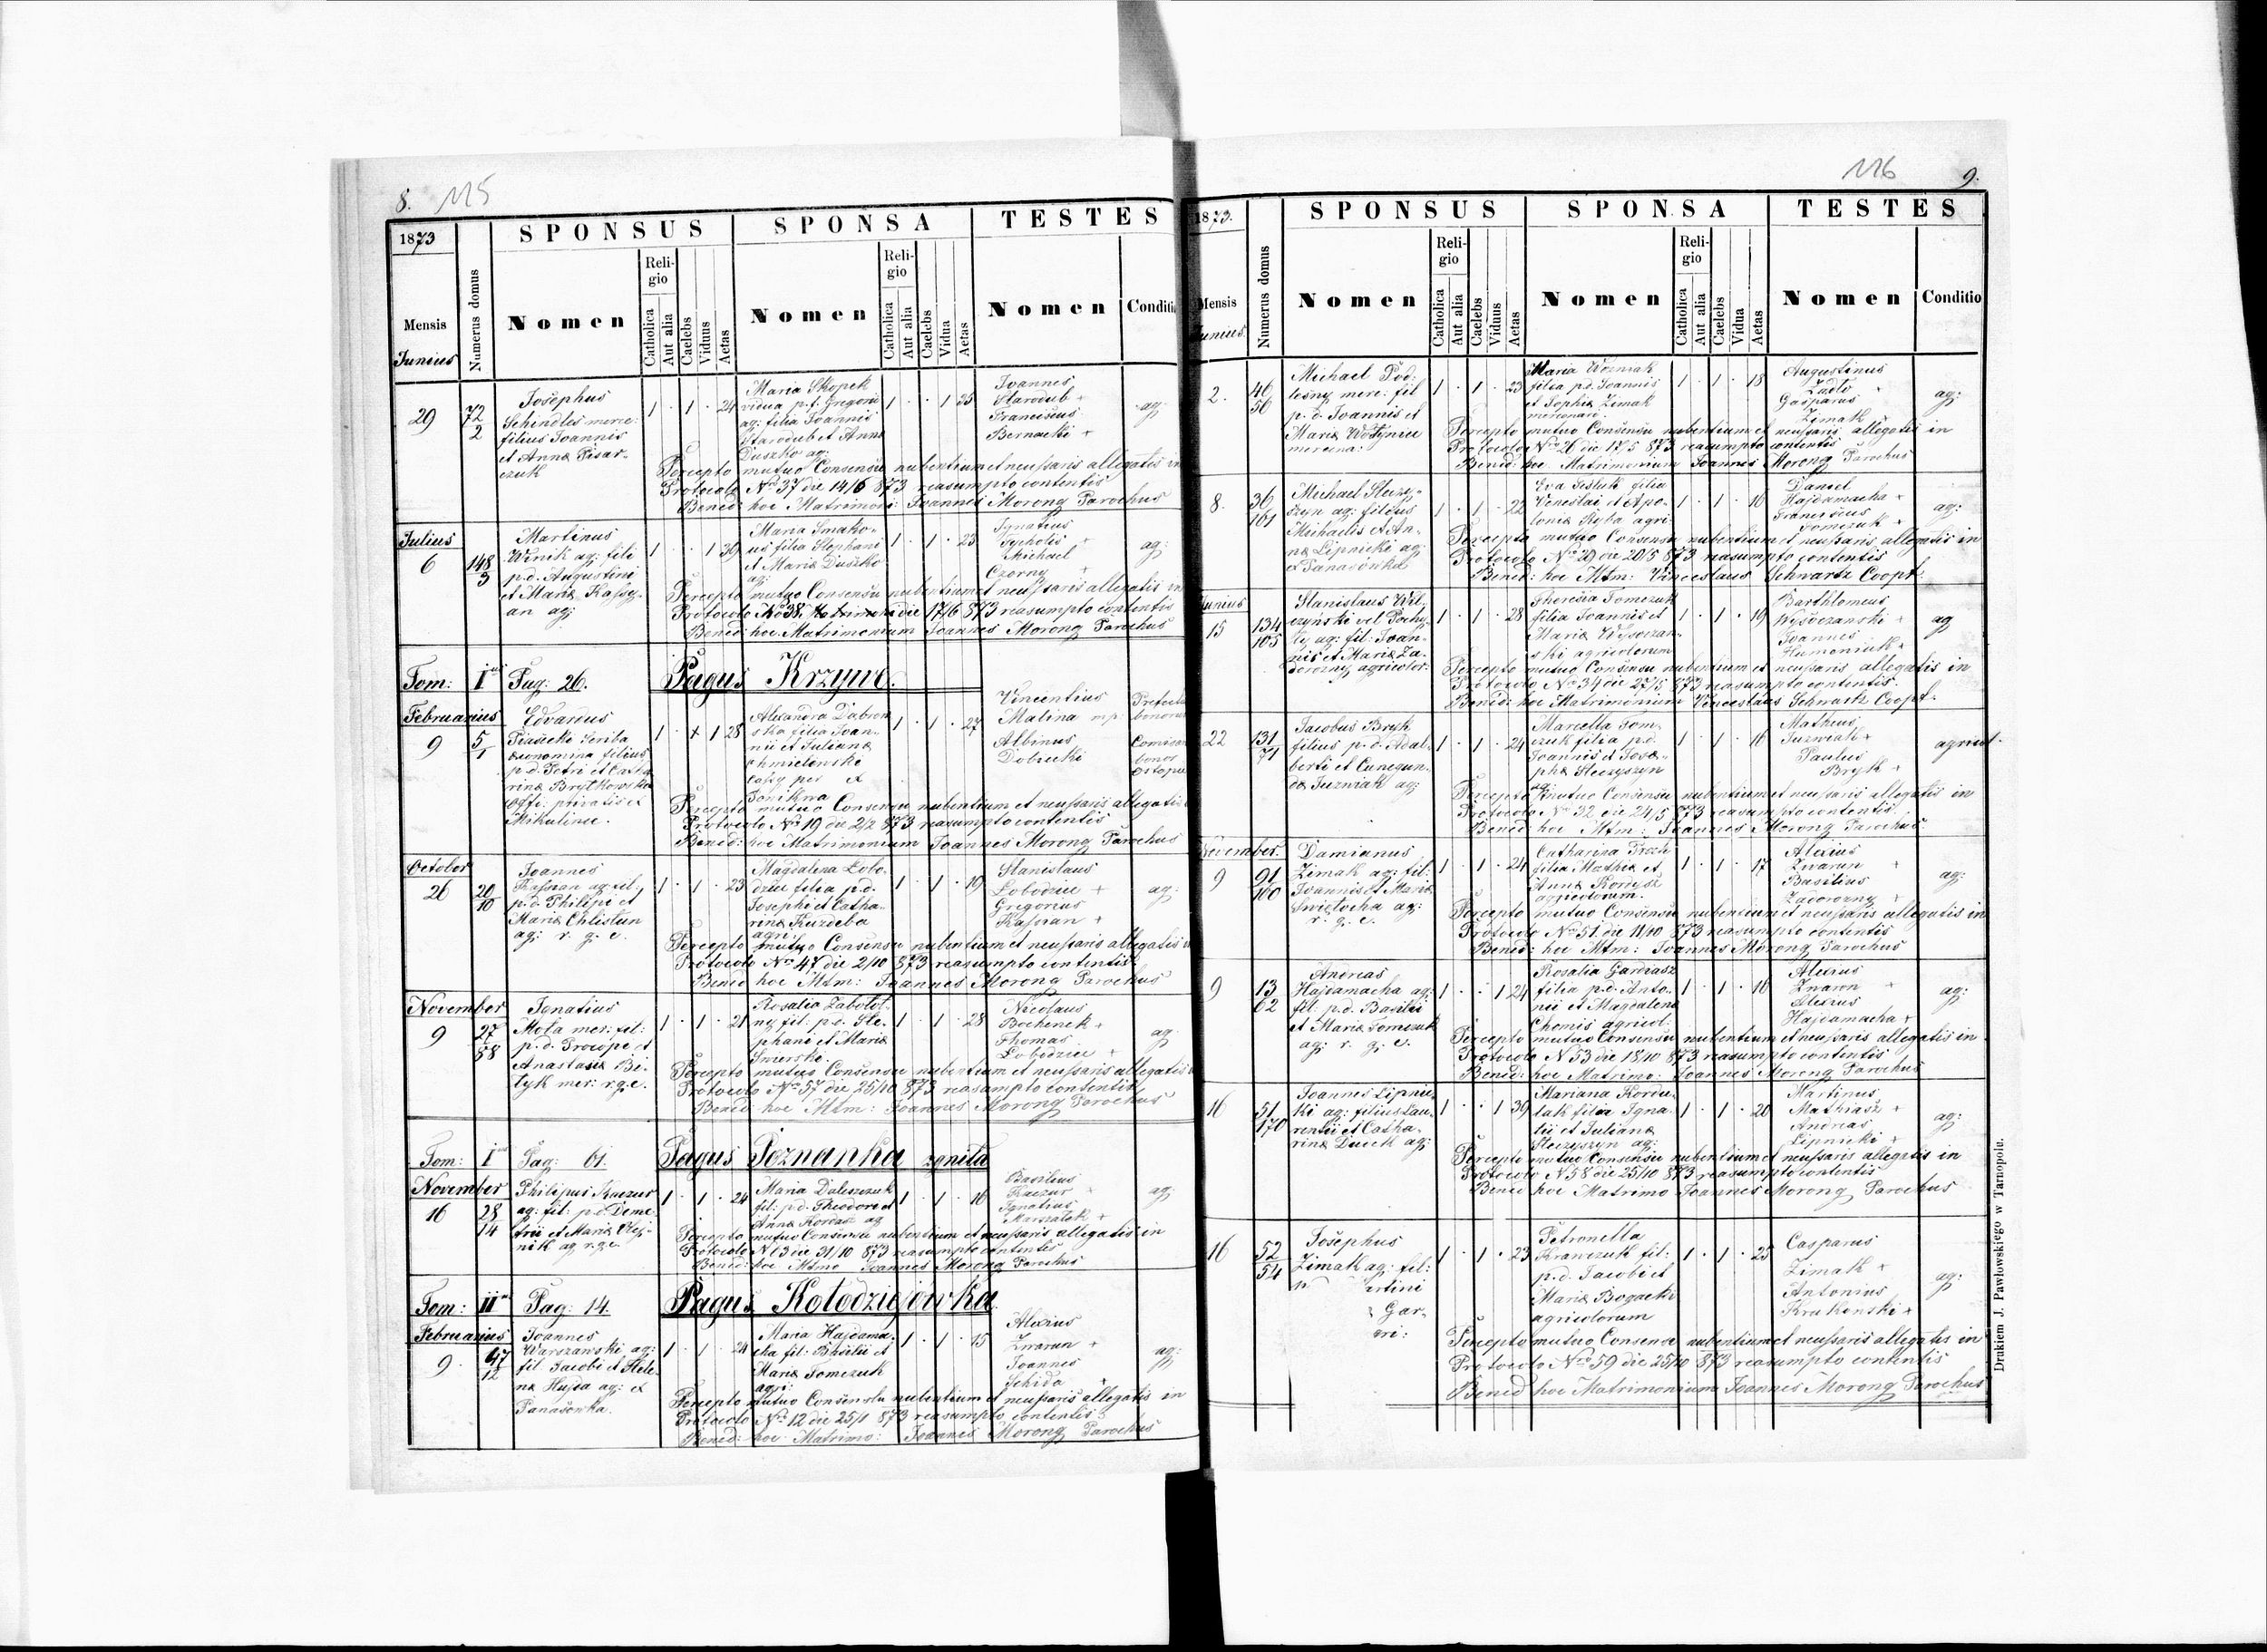 8. 115
1873
SPONSUS
SPONSA
TESTES
Mensis
Junius
Numerus domus
Nomen
Religio
Catholica
Aut alia
Caelebs
Viduus
Aetas
Nomen
Religio
Catholica
Aut alia
Caelebs
Vidua
Aetas
Nomen
Conditi
29
72
2
Josephus
Schindler merce:
filius Joannis
et Annæ Pisar-
czuk
1 · 1 · 24
Maria Skopek
vidua p. f. Gregorii
ag: filia Joannis
Starodub et Annæ
Duszko ag:
1 · · 1 35
Joannes
Starodub +
Franciscus
Bernacki +
ag:
Percepto mutuo Consensu nubentium et neussaris allegatis in
Protocolo Nro 37 die 14/6 873 reasumpto contentis
Bened: hoc Matrimoni: Joannes Morong Parochus
Julius
6
148
3
Martinus
Wirnik ag: fili
p. d. Augustini
et Mariæ Kassy-
an ag:
1 · · 1 39
Maria Smako-
us filia Stephani
et Mariæ Duszko
ag:
1 · 1 · 23
Ignatius
Tycholis +
Michael
Czorny +
ag:
Percepto mutuo Consensu nubentium et neussaris allegatis in
Protocolo No 38 die 17/6 873 reasumpto contentis
Bened: hoc Matrimonium Joannes Morong Parochus
Tom: Ius Pag: 26. Pagus Krzywe.
Februarius
9
5
1
Edvardus
Piasecki Scriba
œconomina filius
p. d. Petri et Catha
rinæ Brytkowska
offi: privatis ex
Mikulince.
1 · + 1 28
Alexandra Dabrow
ska filia Joan-
nis et Julianæ
Chmielewski
ex
Ponikwa
1 · 1 · 27
Vincentius
Malina mp:
Albinus
Dobrucki
Percepto mutuo Consensu nubentium et neussaris allegatis
Protocolo Nro 19 die 2/2 873 reasumpto contentis
Bened: hoc Matrimonium Joannes Morong Parochus
October
26
20
10
Joannes
Kassian ag: fil:
p. d. Philipi et
Mariæ Chlistun
ag: r. g. c.
1 · 1 · 23
Magdalena Łobo-
dziec filia p. d.
Josephi et Catha-
rinæ Kuzdeba
agri:
1 · 1 · 19
Stanislaus
Łobodziec +
Gregorius
Kassian +
ag:
Percepto mutuo Consensu nubentium et neussaris allegatis
Protocolo Nro 47 die 2/10 873 reasumpto contentis
Bened hoc Mtm: Joannes Morong Parochus
November
9
27
58
Ignatius
Mota mer: fil:
p. d. Procopi et
Anastasiæ Bi-
tyk mer: r. g. c.
1 · 1 · 21
Rosalia Zabłot-
ny fil: p. d. Ste-
phani et Mariæ
Smerski.
1 · 1 · 28
Nicolaus
Bochenek +
Thomas
Łobodziec +
ag:
Percepto mutuo Consensu nubentium et neussaris allegatis
Protocolo Nro 57 die 25/10 873 reasumpto contentis
Bened: hoc Mtm: Joannes Morong Parochus
Tom: Ius Pag: 61. Pagus Poznanka zgniła
November
16
28
14
Philipus Kaczur
ag: fil: p. d. Deme-
trii et Mariæ Olej-
nik ag r. g. c.
1 · 1 · 24
Maria Daleszczuk
fil: p. d. Theodori et
Annæ Kordas ag
1 · 1 · 16
Basilius
Kaczur +
Ignatius
Marszałek +
ag:
Percepto mutuo Consensu nubentium et neussaris allegatis in
Protocolo N 63 die 31/10 873 reasumpto contentis
Bened: hoc Mtmo Joannes Morong Parochus
Tom: IIus Pag: 14. Pagus Kołodziejówka
Februarius
9
47
12
Joannes
Warszawski ag:
fil Jacobi et Hele-
næ Hujda ag: ex
Panasówka.
1 · 1 · 24
Maria Hajdama-
cha fil: Basilii et
Mariæ Tomczuk
agri:
1 · 1 · 15
Alexius
Zwarun +
Joannes
Schida +
ag:
Percepto mutuo Consensu nubentium et neussaris allegatis in
Protocolo Nro 12 die 25/1 873 reasumpto contentis
Bened: hoc Matrimo: Joannes Morong Parochus
116 9.
1873.
SPONSUS
SPONSA
TESTES
Mensis
Junius.
Numerus domus
Nomen
Religio
Catholica
Aut alia
Caelebs
Viduus
Aetas
Nomen
Religio
Catholica
Aut alia
Caelebs
Vidua
Aetas
Nomen
Conditio
2.
46
50
Michael Pod-
lesny merc. fil
p. d. Joannis et
Mariæ Wołyniec
mercina:
1 · 1 · 23
Maria Wozniak
filia p. d. Joannis
et Sophiæ Zimak
mercinari.
1 · 1 · 18
Augustinus
Zadło +
Gasparus
Zimak
ag:
Percepto mutuo Consensu nubentium et neussaris allegatis in
Protocolo Nro 26 die 17/5 873 reasumpto contentis
Bened: hoc Matrimonium Joannes Morong Parochus
8.
36
161
Michael Steczy-
szyn ag: filius
Michaelis et An-
næ Lipnicki ag:
ex Panasówka
1 · 1 · 22
Eva Sestuk filia
Venceslai et Apo-
loniæ Ryba agri:
1 · 1 · 16
Daniel
Hajdamacha +
Franciscus
Tomczuk +
ag:
Percepto mutuo Consensu nubentium et neussaris allegatis in
Protocolo Nro 29 die 20/5 873 reasumpto contentis
Bened: hoc Mtm: Vinceslaus Schwartz Coopt.
Junius
15
134
105
Stanislaus Wil-
czyński vel Pochy-
ły ag: fil: Joan-
nis et Mariæ Za-
dorozny agricolor:
1 · 1 · 28
Theresia Tomczuk
filia Joannis et
Mariæ Wysoczan-
ski agricolorum
1 · 1 · 19
Barthlomeus
Wysoczanski +
Joannes
Humeniuk +
ag
Percepto mutuo Consensu nubentium et neussaris allegatis in
Protocolo Nro 34 die 27/5 873 reasumpto contentis
Bened: hoc Matrimonium Venceslaus Schwarth Coopt.
22
131
71
Jacobus Bryk
filius p. d. Adal-
berti et Cunegun-
dæ Juzwiak ag:
1 · 1 · 24
Marcella Tom-
czuk filia p. d.
Joannis et Jose-
phæ Steczyszyn
ag:
1 · 1 · 16
Matheus
Juzwiak +
Paulus
Bryk +
agricol.
Percepto mutuo Consensu nubentium et neussaris allegatis in
Protocolo Nro 32 die 24/5 873 reasumpto contentis
Bened: hoc Mtm: Joannes Morong Parochus
November.
9
91
160
Damianus
Zimak ag: fil:
Joannis et Mariæ
Swiętocha ag:
r. g. c.
1 · 1 · 24
Catharina Froch
filia Mathiæ et
Annæ Kordysz
agricolorum.
1 · 1 · 17
Alexius
Zwarun +
Basilius
Zadorozny +
ag:
Percepto mutuo Consensu nubentium et neussaris allegatis in
Protocolo Nro 51. die 11/10 873 reasumpto contentis
Bened: hoc Mtm: Joannes Morong Parochus
9
13
62
Andreas
Hajdamacha ag:
fil. p. d. Basilii
et Mariæ Tomczuk
ag: r. g. c.
1 · · 1 24
Rosalia Gardiasz
filia p. d. Anto-
nii et Magdalena
Chomis agricol:
1 · 1 · 16
Alexius
Zwaron +
Alexius
Hajdamacha +
ag:
Percepto mutuo Consensu nubentium et neussaris allegatis in
Protocolo N 53 die 18/10 873 reasumpto contentis
Bened: hoc Matrimo: Joannes Morong Parochus
16
51
170
Joannes Lipnic-
ki ag: filius Lau-
rentii et Catha-
rinæ Ducek ag:
1 · · 1 39
Mariana Kordu-
lak filia Igna-
tii et Julianæ
Steczyszyn ag:
1 · 1 · 20
Martinus
Mathiasz +
Andreas
Lipnicki +
ag:
Percepto mutuo Consensu nubentium et neussaris allegatis in
Protocolo N 58 die 25/10 873 reasumpto contentis
Bened hoc Matrimo Joannes Morong Parochus
16
52
54
Josephus
Zimak ag: fil:
artini
Gar-
ri:
1 · 1 · 23
Petronella
Krawczuk fil:
p. d. Jacobi et
Mariæ Bogacki
agricolorum
1 · 1 · 25
Casparus
Zimak +
Antonius
Krukonski +
ag:
Percepto mutuo Consensu nubentium et neussaris allegatis in
Protocolo Nro 59 die 25/10 873 reasumpto contentis
Bened hoc Matrimonium Joannes Morong Parochus
Drukiem J. Pawłowskiego w Tarnopolu.